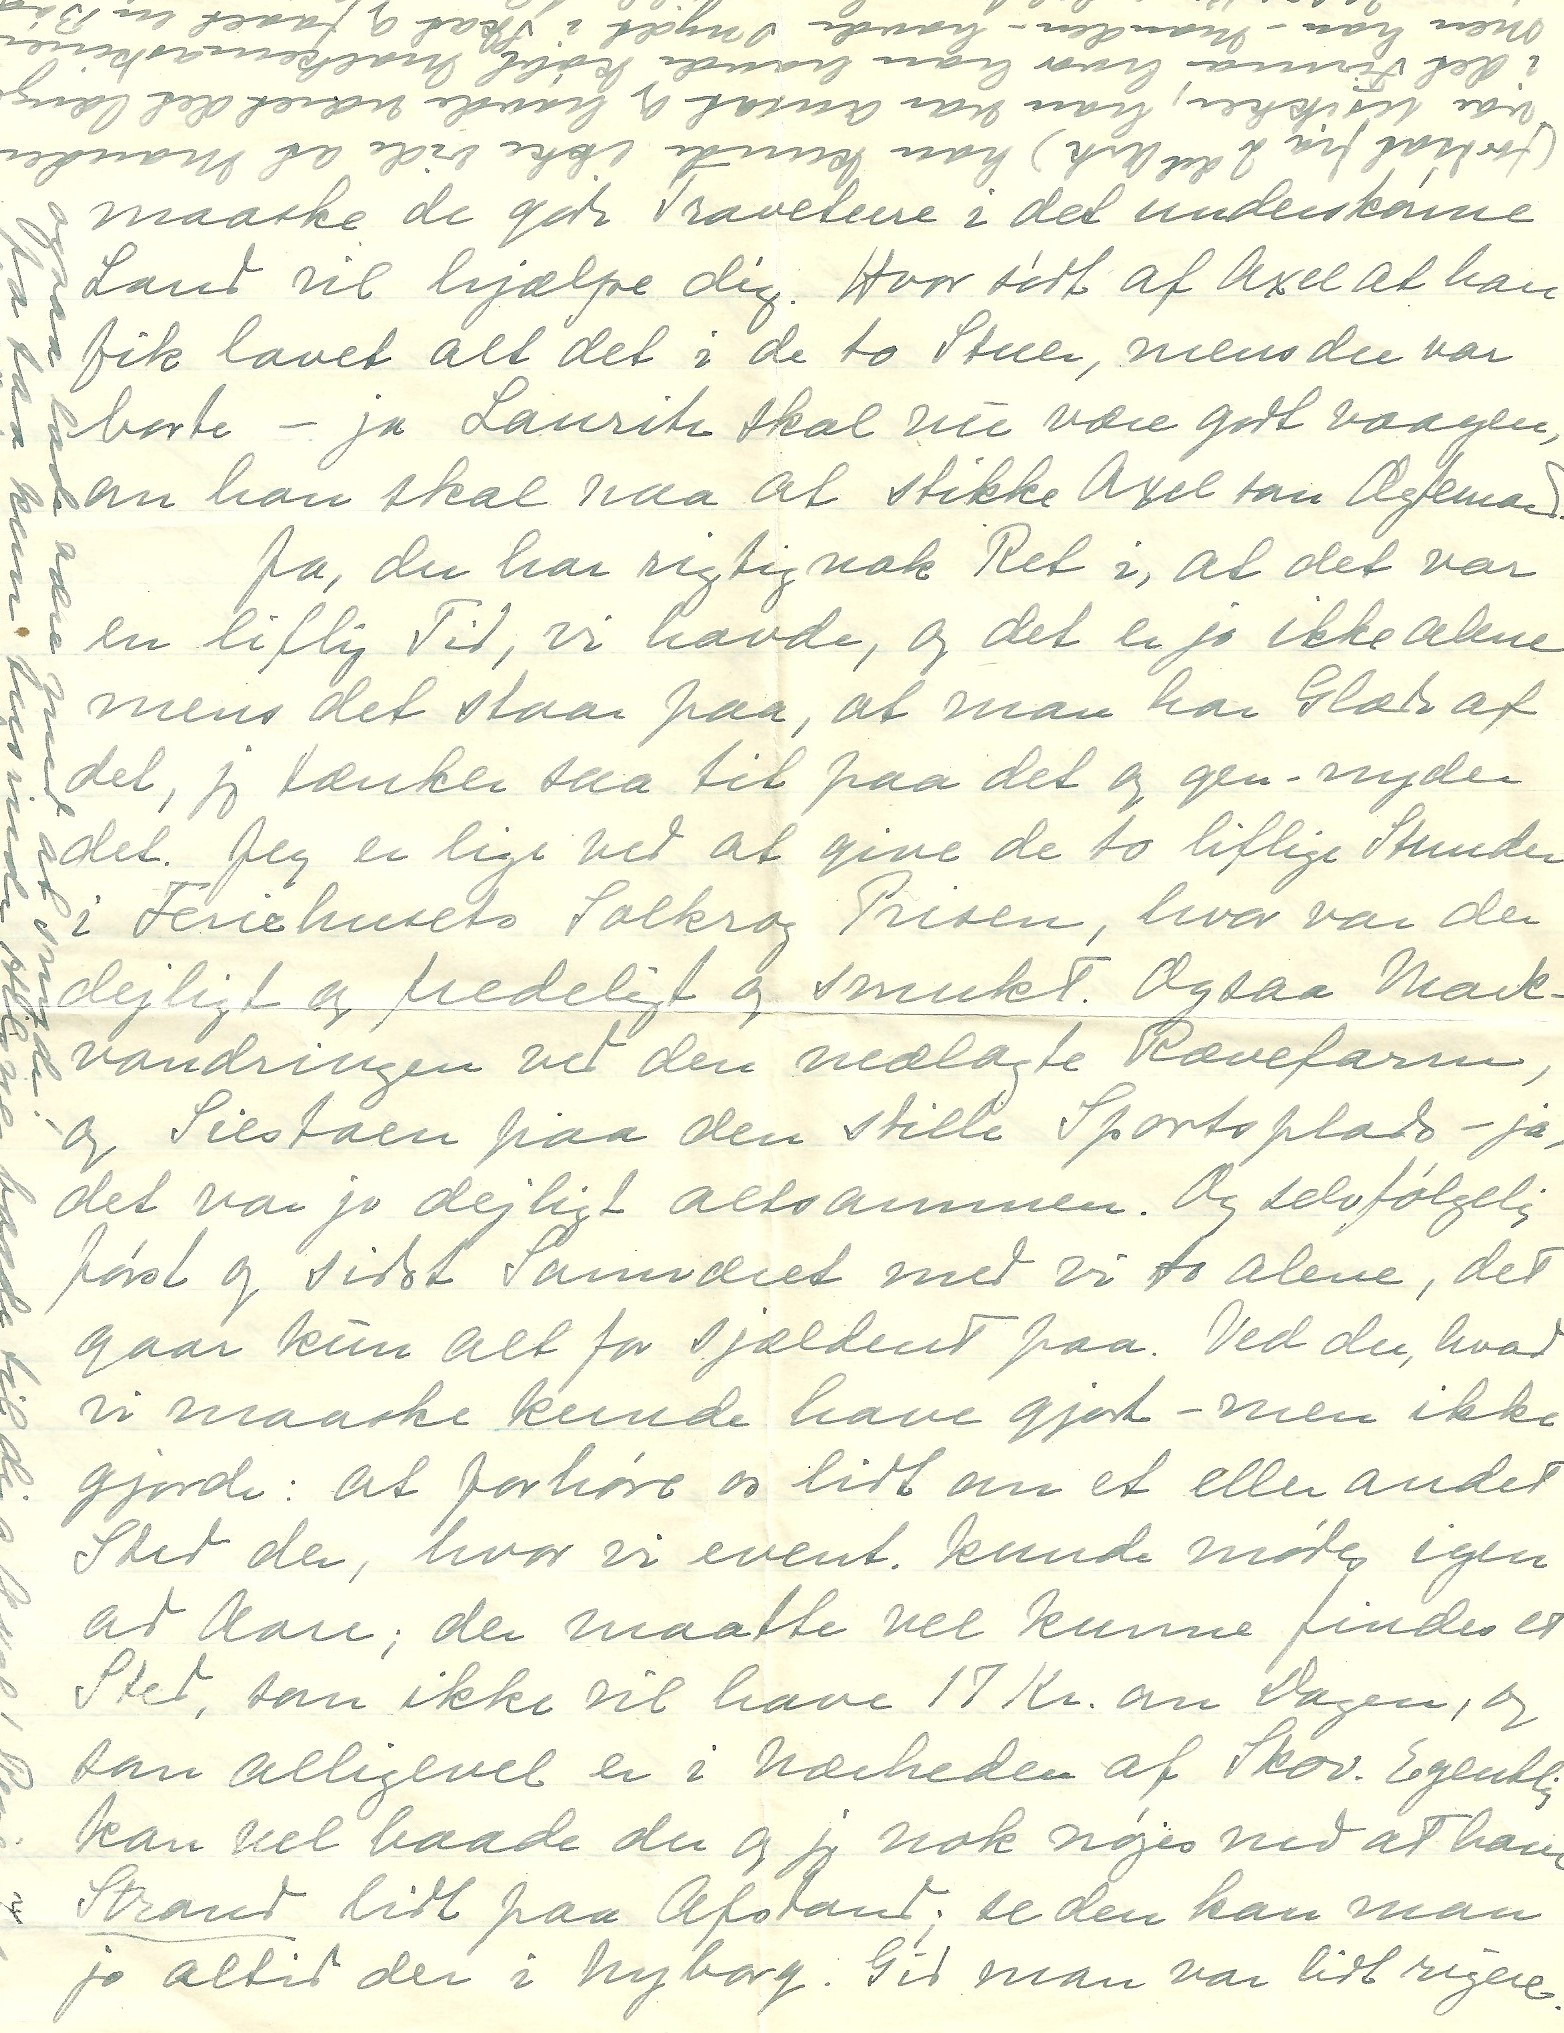 maaske de gode Traveture i det underskønne
Land vil hjælpe dig. Hvor sødt af Axel at han
fik lavet alt det i de to Stuer, mens du var
borte – ja Lauritz skal nu være godt vaagen,
om han skal naa at stikke Axel som Ægtemand.
Ja, du har rigtignok Ret i, at det var
en liflig Tid, vi havde, og det er jo ikke alene
mens det staar paa, at man har Glæde af
det, jg tænker saa tit paa det og gen-nyder
det. Jeg er lige ved at give de to liflige Stunder
i Feriehusets Solkrog Prisen, hvor var der
dejligt og fredeligt og smukt. Ogsaa Mark-
vandringen ved den nedlagte Rævefarm,
og Siestaen paa den stille Sportsplads – ja,
det var jo dejligt altsammen. Og selvfølgelig
først og sidst Samværet med vi to alene, det
gaar kun alt for sjældent paa. Ved du, hvad
vi maaske kunde have gjort – men ikke
gjorde: at forhøre os lidt om et eller andet
Sted der, hvor vi event. kunde mødes igen
ad Aare; der maatte vel kunne findes et
Sted, som ikke vil have 17 Kr. om Dagen, og
som alligevel er i Nærheden af Skov. Egentlig
kan vel baade du og jg nok nøjes med at have
Strand lidt paa Afstand; se den kan man
jo altid der i Nyborg. Gid man var lidt rigere.
(fortsat fra 2det Ark) han kunde ikke vide at Manden
var usikker, han var ansat og havde været det længe
i det Firma hvor han havde købt Malkemaskinen
Men han – Manden – havde snydt i Skat og faaet en Bøde
ogsaa lade være med at snyde!